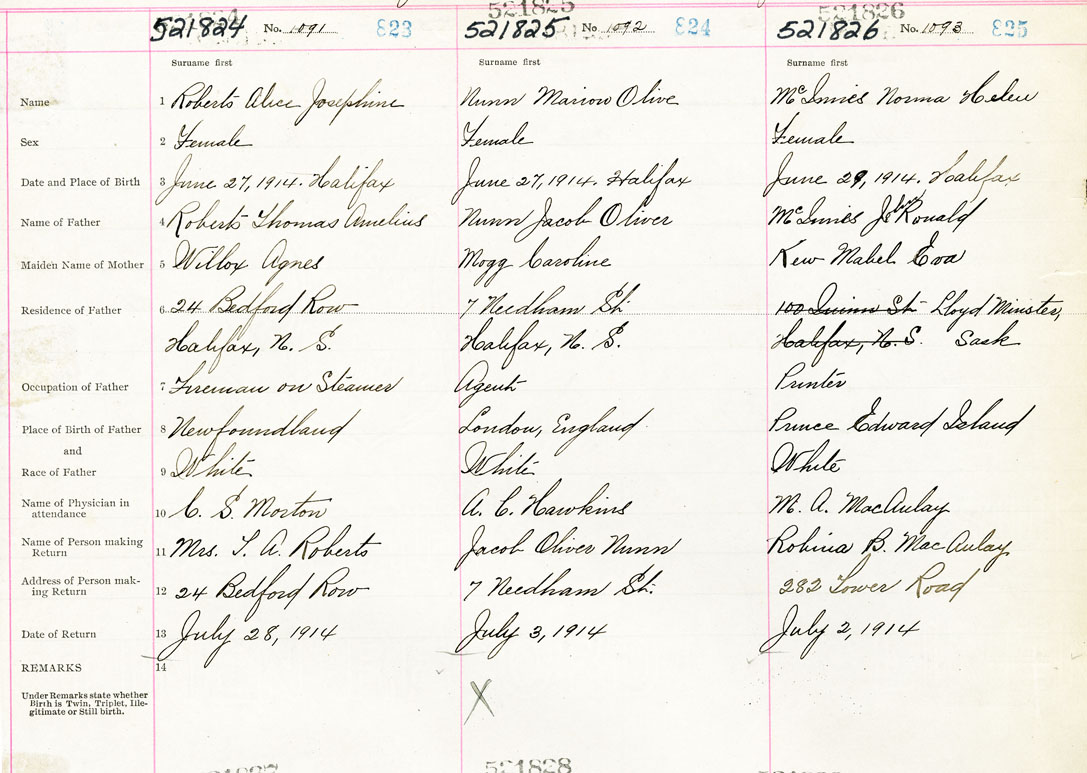 521824 No. 1091 823 521825 No 1092 824 521826 No. 1093 825
521825 521826
Surname first Surname first Surname first
Name 1 Roberts Alice Josephine Nunn Marion Olive McInnes Norma Helen
Sex 2 Female Female Female
Date and Place of Birth 3 June 27, 1914. Halifax June 27, 1914. Halifax June 29, 1914. Halifax
Name of Father 4 Roberts Thomas Amelius Nunn Jacob Oliver McInnes Ronald
Maiden Name of Mother 5 Willox Agnes Mogg Caroline Kew Mabel Eva
Residence of Father 6 24 Bedford Row 7 Needham St. 100 Quinn St. Lloyd Minister,
Halifax, N. S. Halifax, N. S. Halifax, N. S. Sask
Occupation of Father 7 Fireman on Steamer Agent Printer
Place of Birth of Father 8 Newfoundland London, England Prince Edward Island
and
Race of Father 9 White White White
Name of Physician in
attendance 10 C. S. Morton A. C. Hawkins M. A. MacAulay
Name of Person making
Return 11 Mrs. T. A. Roberts Jacob Oliver Nunn Robina B. MacAulay
Address of Person mak-
ing Return 12 24 Bedford Row 7 Needham St. 282 Tower Road
Date of Return 13 July 28, 1914 July 3, 1914 July 2, 1914
REMARKS 14
Under Remarks state whether
Birth is Twin, Triplet, Ille-
gitimate or Still birth.
X
521828